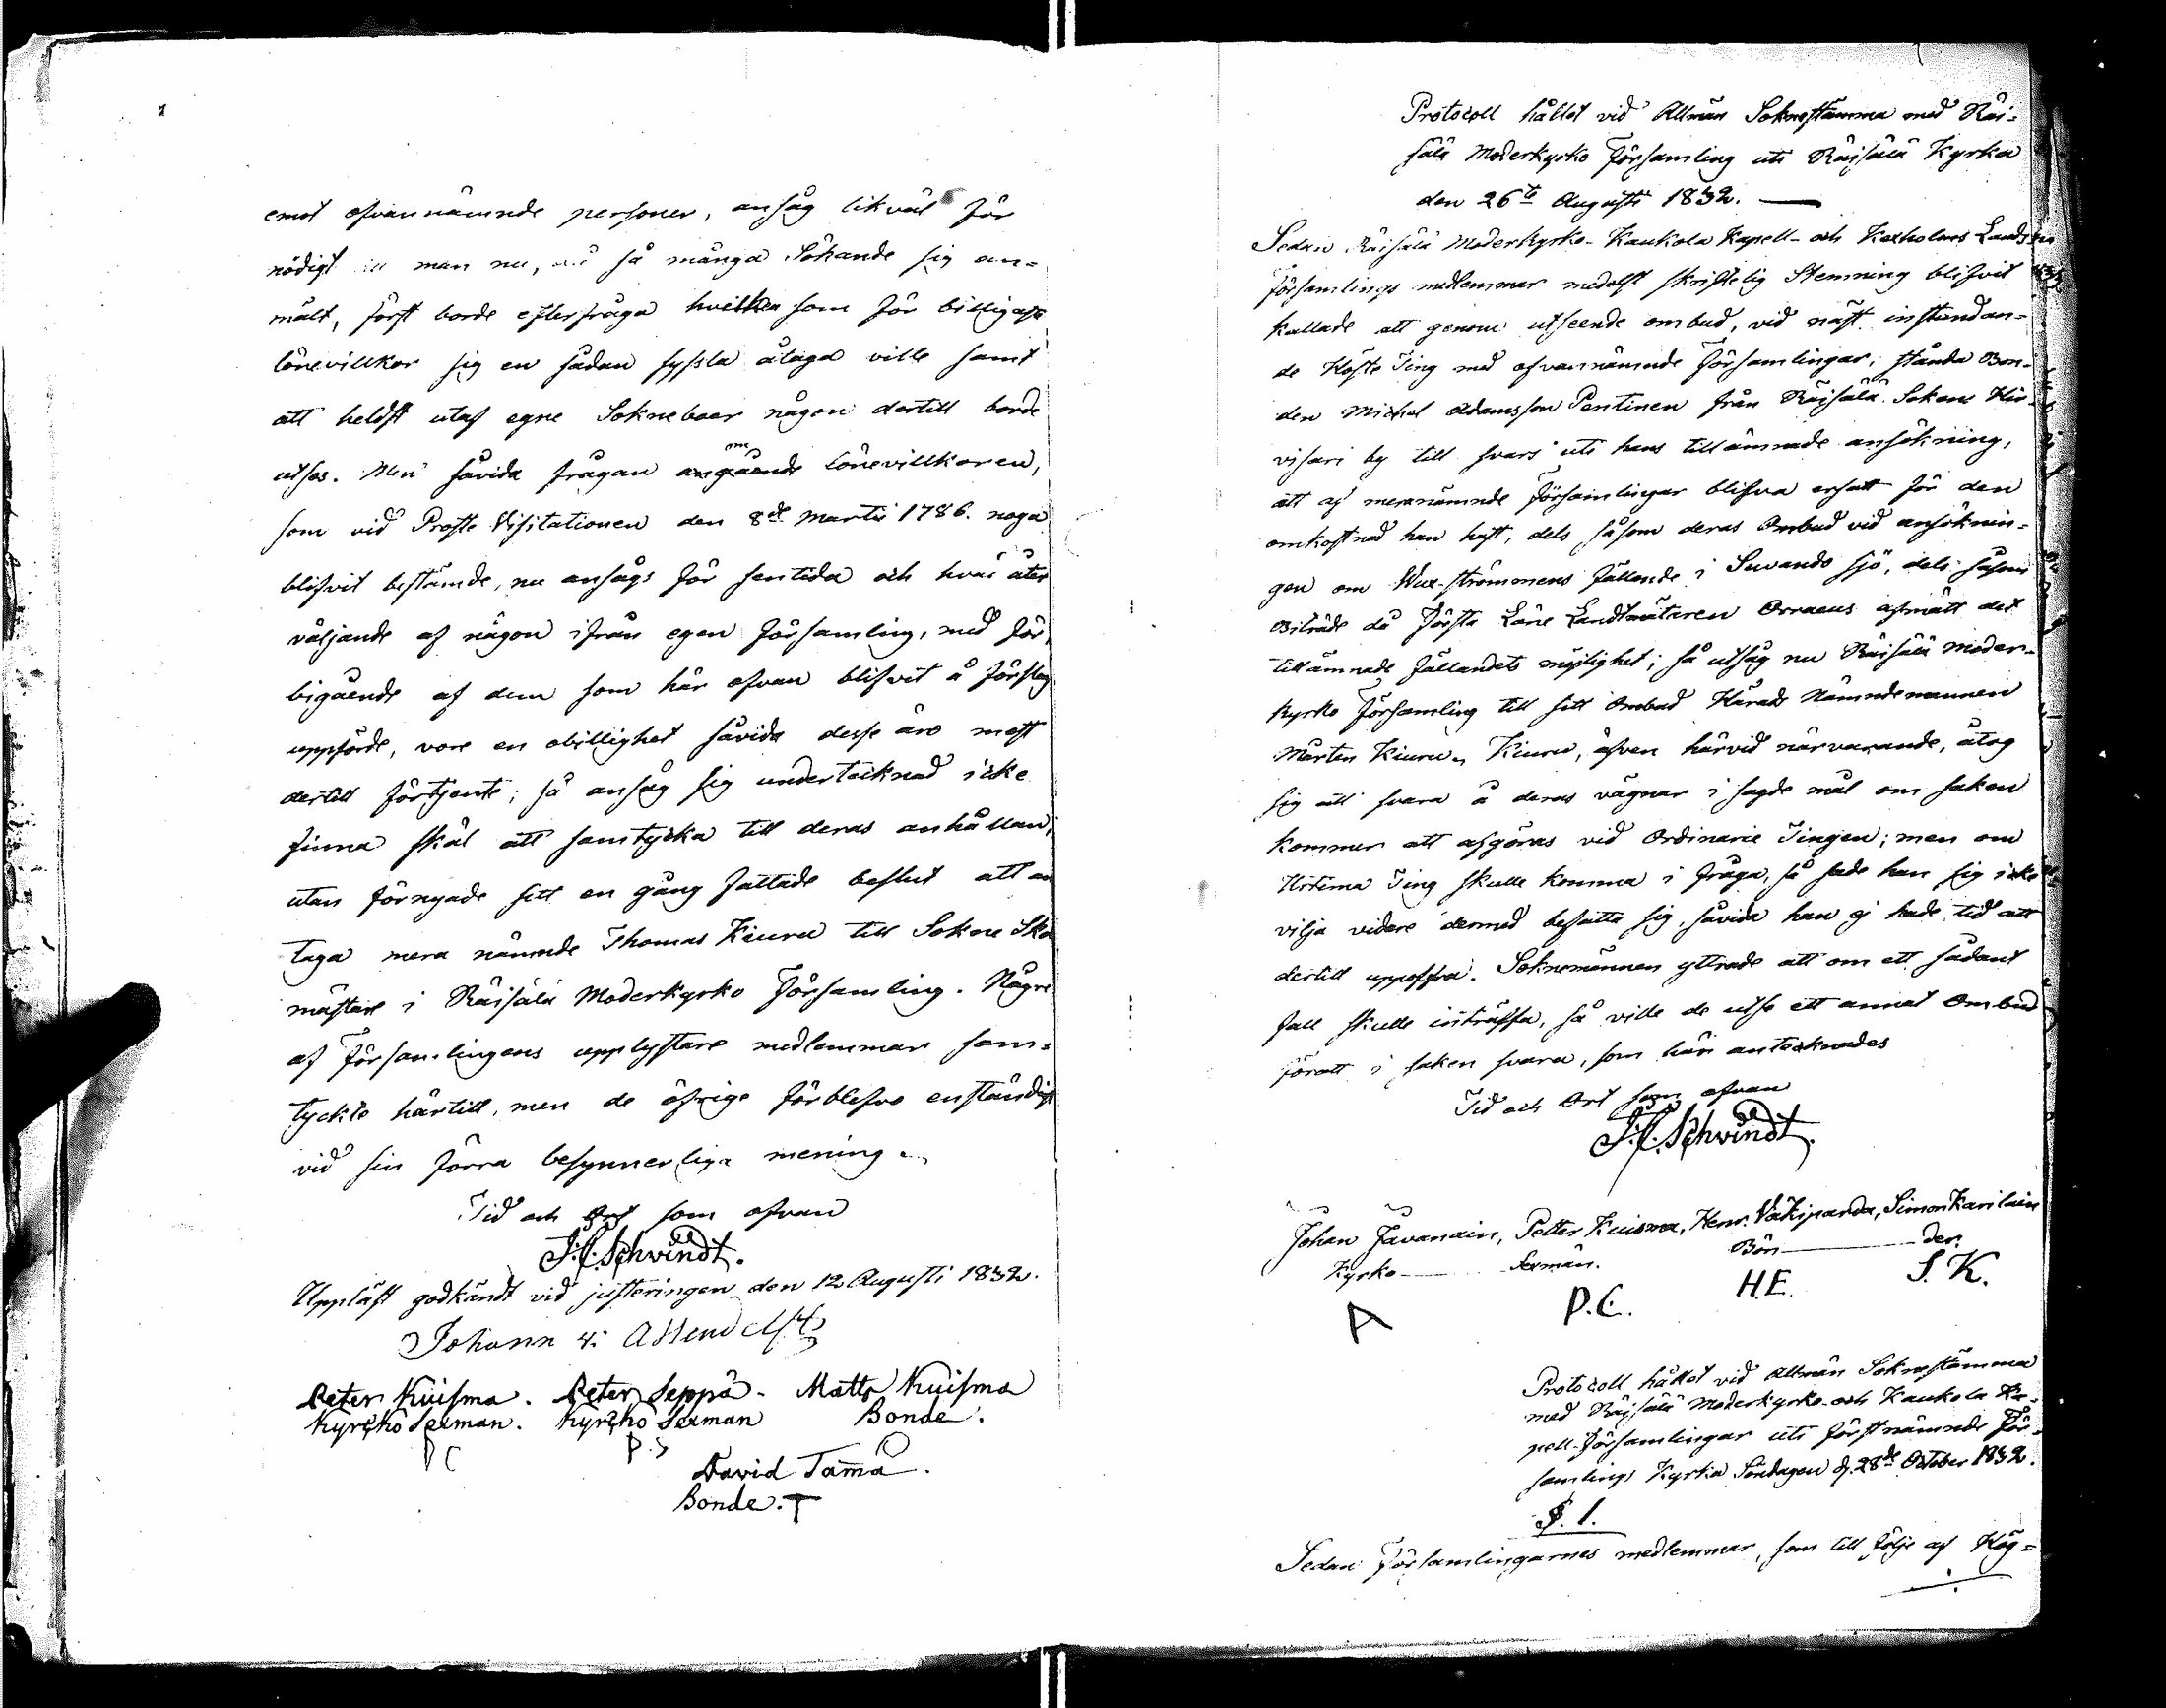 emot ofvannämnde personer, ansåg likväl för
nödigt man nu, så många Sökande sig an=
mält, först borde efterfråga hvilken som för billigaste
lönevillkor sig en sådan syssla åtaga ville samt
att heldst utaf egne Sokneboer någon dertill borde
utses. Men såvida frågan om lönevillkoren,
som vid Proste Visitationen den 8de Martii 1786. noga
blifvit bestämde, nu ansågs för sentida och hvar åter
väljande af någon ifrån egen församling, med för
bigående af dem som här ofvan blifvit å förslag
uppförde, vore en obillighet såvida desse äro mest
dertill förtjente; så ansåg sig undertecknad icke
finna skäl att samtycka till deras anhållan,
utan förnyade sitt en gång fattade beslut att an
taga mera nämnde Thomas Kiuru till Sokne Skol
mästare i Räisälä Moderkyrko Församling. Några
af Församlingens upplystare medlemmar sam=
tyckte härtill, men de öfrige förblefvo enständigt
vid sin förra besynnerliga mening.
Tid och Ort som ofvan
Schvindt.
Uppläst godkändt vid justeringen den 12 Augusti 1832.
Johann
Peter Kuisma. Peter Seppä. Matts Kuisma
Kyrcko Sexman. Kyrcko Sexman Bonde.
PC P.S
David Tamä.
Bonde. T
Protocoll hållet vid Allmän Soknestämma med Räi=
sälä Moderkyrko Församling uti Räisälä Kyrka
den 26te Augusti 1832.
Sedan Räisälä Moderkyrko- Kaukola Kapell- och Kexholms Lands
församlings medlemmar medelst skriftelig Stemning blifvit
kallade att genom utseende ombud, vid näst instundan=
de Höste Ting med ofvannämnde Församlingar, stånda Bon=
den Michel Adamsson Pentinen från Räisälä Sokens Hir=
visari by till svars uti hans tillämnade ansökning,
att af meranämnde Församlingar blifva ersatt för den
omkostnad han haft, dels såsom deras Ombud vid ansöknin=
gen om Wux-strömmens fällande i Suvando Sjö, dels såsom
Biträde då Första Läne Landtmätaren Orraeus afmätt det
tillämnade fällandets möjlighet; så utsåg nu Räisälä Moder=
kyrko Församling till sitt Ombud Härads Nämndemannen
Mårten Kiuru. Kiuru, äfven härvid närvarande, åtog
sig att svara å deras vägnar i sagde mål om saken
kommer att afgöras vid Ordinarie Tingen; men om
Urtima Ting skulle komma i fråga, så sade han sig icke
vilja vidare dermed befatta sig, såvida han ej hade tid att
dertill uppoffra. Soknemännen yttrade att om ett sådant
fall skulle inträffa, så ville de utse ett annat Ombud
föratt i saken svara, som här antecknades
Tid och Ort som ofvan
Schvindt.
Johan Javanain, Petter Kuisma, Henr. Väkiparda, Simon Karilain
Kyrko Sexmän. Bön der.
A P.C. H.E. S.K.
Protocoll hållet vid Allmän Soknestämma
med Räisälä Moderkyrko- och Kaukola Ka=
pell-Församlingar uti förstnämnde För=
samlings Kyrka Söndagen d. 28de October 1832.
§. 1.
Sedan Församlingarnes medlemmar, som till följe af Hög=